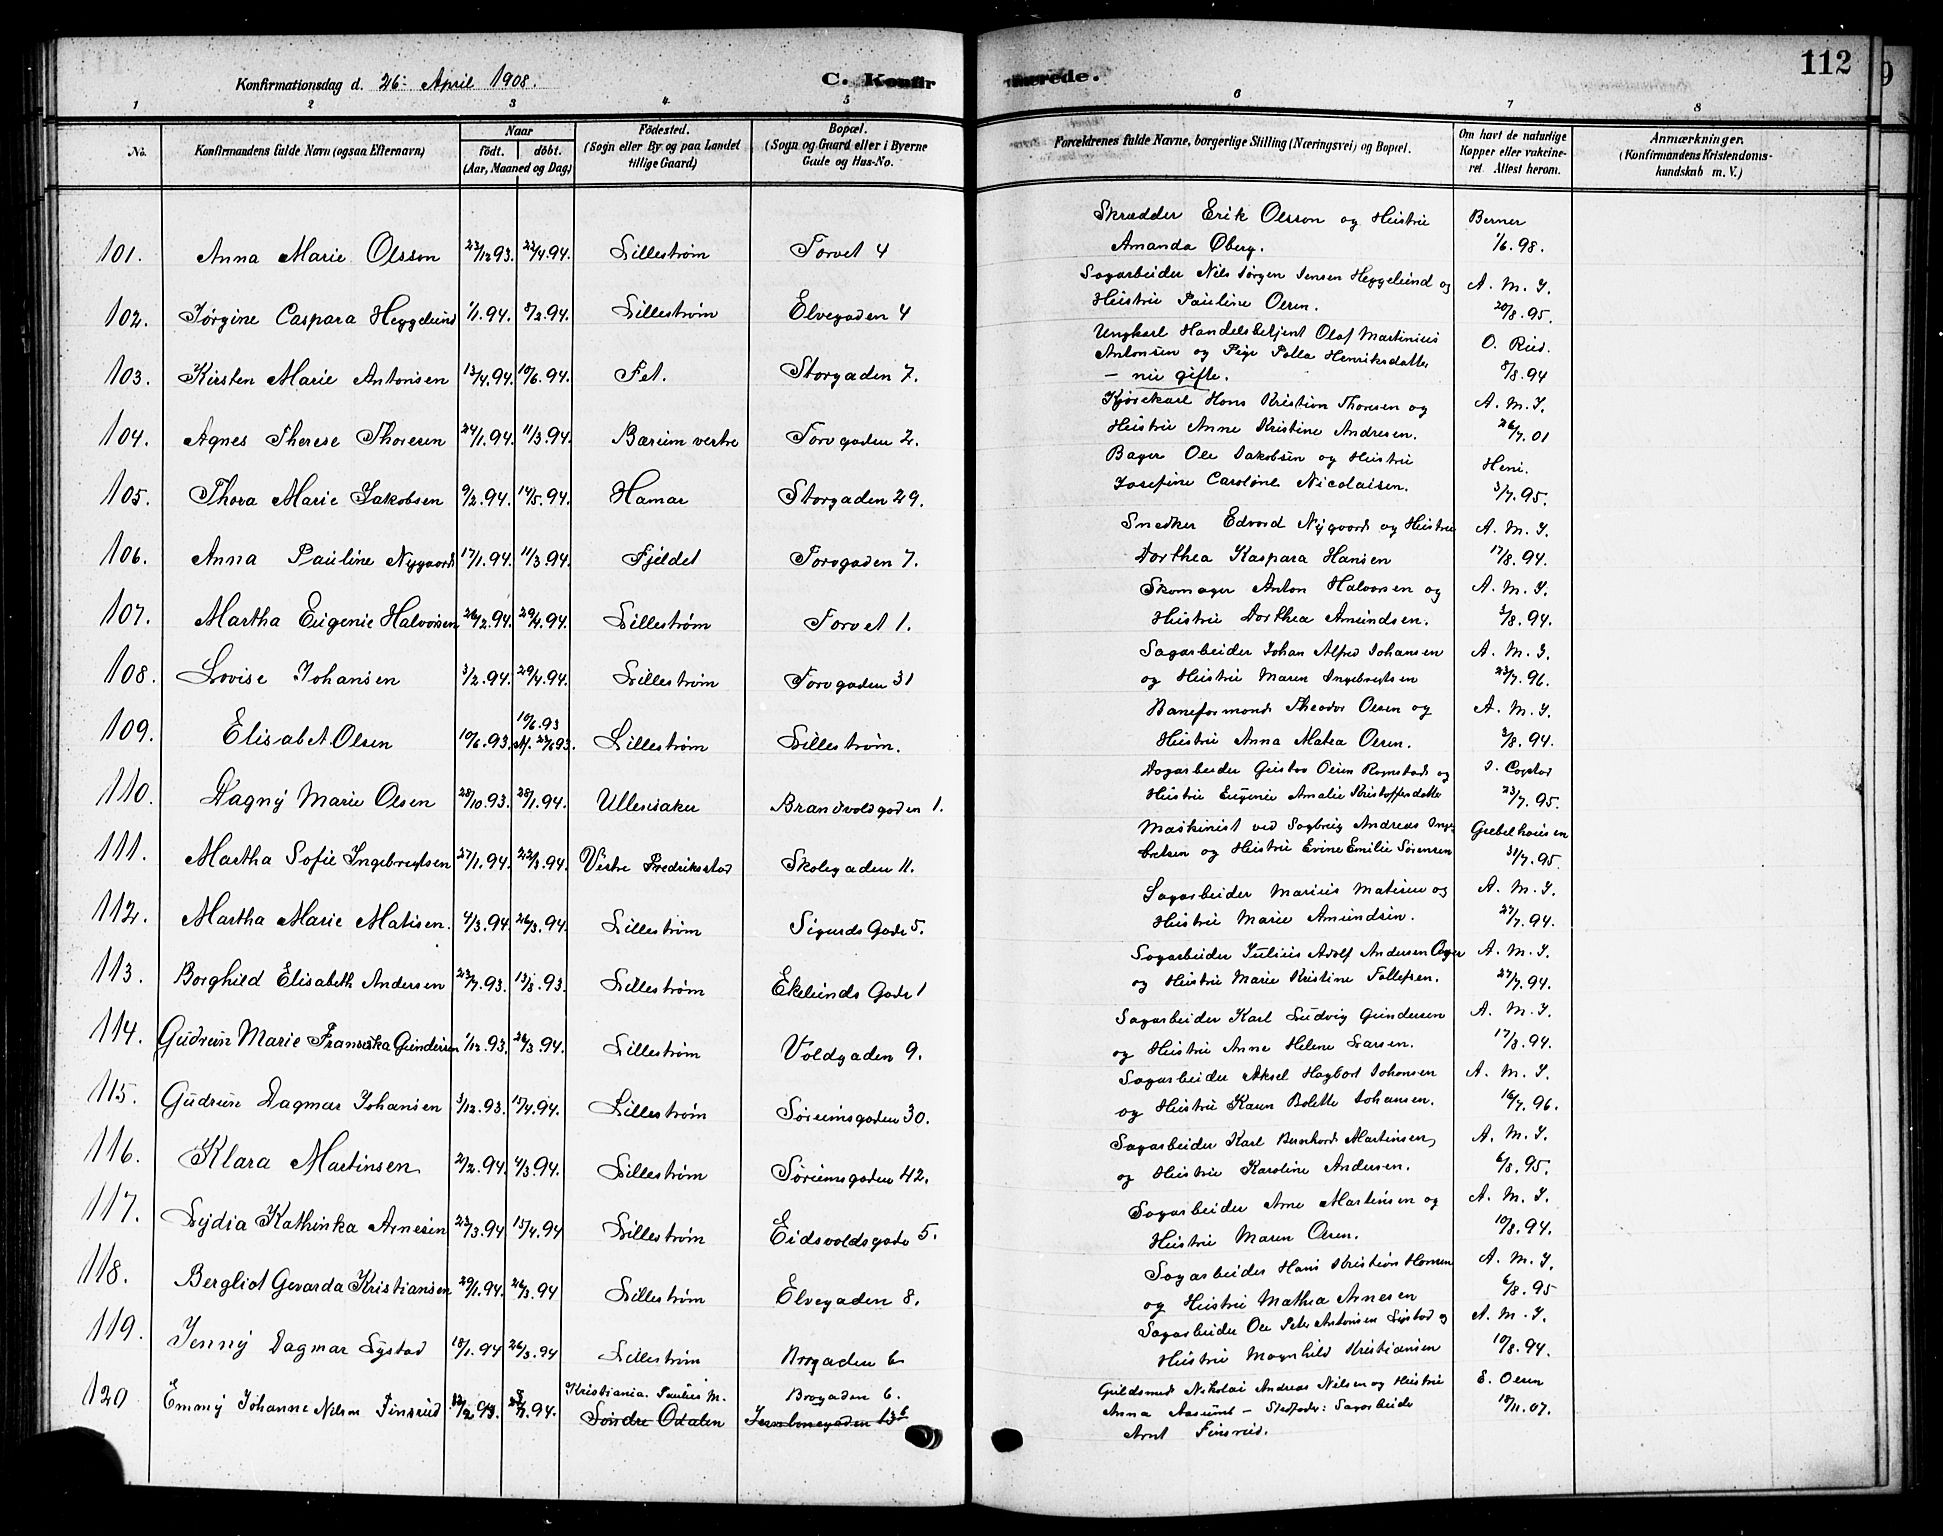 112
Konfirmationsdag d. 26. April 1908.
C. Konfirmerede.
1 2 3 4 5 6 7 8
No.
Konfirmandens fulde Navn (ogsaa Efternavn)
Naar
født. døbt.
(Aar, Maaned og Dag)
Fødested.
(Sogn eller By og paa Landet
tillige Gaard)
Bopæl.
(Sogn og Gaard eller i Byerne
Gade og Hus-No.
Forældrenes fulde Navne, borgerlige Stilling (Næringsvei) og Bopæl.
Om havt de naturlige
Kopper eller vakcine-
ret. Attest herom.
Anmærkninger.
(Konfirmandens Kristendoms-
kundskab m. V.)
101. Anna Marie Olsson 22/12 93. 22/4. 94. Lillestrøm Torvet 4
Skrædder Erik Olsson og Hustru Berner
Amanda Øberg. 1/6. 98.
102. Jørgine Caspara Heggelund 1/1. 94. 8/2. 94. Lillestrøm Elvegaden 4
Sagarbeider Nils Jørgen Jensen Heggelund og A. M. J.
Hustru Pauline Olsen. 20/8. 95.
103. Kirsten Marie Antonsen 13/4. 94. 10/6. 94. Fet. Storgaden 7.
Ungkarl Handelsbetjent Olaf Martinius O. Rud.
Antonsen og Pige Palla Henriksdatter 8/8. 94
– nu gifte.
104. Agnes Therese Thoresen 24/1. 94. 11/3. 94. Bærum vestre Torvgaden 2.
Kjørekarl Hans Kristian Thoresen og A. M. J.
Hustru Anne Kristine Andresen. 26/7. 01
105. Thora Marie Jakobsen 9/2. 94. 14/5. 94. Hamar Storgaden 29.
Bager Ole Jakobsen og Hustru Heni.
Josefine Caroline Nicolaisen. 3/7. 95.
106. Anna Pauline Nygaard 17/1. 94. 11/3. 94. Fjeldet Torvgaden 7.
Snedker Edvard Nygaard og Hustru A. M. J.
Dorthea Kaspara Hansen 17/8. 94.
107. Martha Eugenie Halvorsen 26/2. 94. 29/4. 94. Lillestrøm Torvet 1.
Skomager Anton Halvorsen og A. M. J.
Hustru Dorthea Amundsen. 3/8. 94.
108. Lovise Johansen 3/2. 94. 29/4. 94. Lillestrøm Torvgaden 31
Sagarbeider Johan Alfred Johansen A. M. J.
og Hustru Maren Ingebregtsen 23/7. 96.
109. Elisabet Olsen 10/6. 93. 10/6. 93 Lillestrøm Lillestrøm.
Baneformand Theodor Olsen og A. M. J.
Hustru Anna Matea Olsen. 3/8. 94.
110. Dagny Marie Olsen 28/10. 93. 28/1. 94. Ullensaker Brandvoldgaden 1.
Dagarbeider Gustav Olsen Romstad og
Hustru Eugenie Amalie Kristoffersdatter 23/7. 95.
111. Martha Sofie Ingebregtsen 27/1. 94. 22/3. 94. Vestre Fredriksstad Skolegaden 11.
Maskinist ved Sagbrug Andreas Inge- Grebelhousen
bretsen og Hustru Evine Emilie Sørensen 31/7. 95.
112. Martha Marie Matisen. 4/3. 94. 26/3. 94. Lillestrøm Sigurds Gade 5.
Sagarbeider Marius Matisen og A. M. J.
Hustru Marie Amundsen. 27/7. 94.
113. Borghild Elisabeth Andersen 23/7. 93. 13/8. 93. Lillestrøm Ekelunds Gade 1
Sagarbeider Julius Adolf Andersen A. M. J.
og Hustru Marie Kristine Tollefsen. 27/7. 94.
114. Gudrun Marie Franciska Gundersen 1/12. 93. 26/3. 94. Lillestrøm Voldgaden 9.
Sagarbeider Karl Ludvig Gundersen A. M. J.
og Hustru Anne Helene Larsen. 17/8. 94.
115. Gudrun Dagmar Johansen 3/12. 93. 15/4. 94. Lillestrøm Sørumsgaden 30.
Sagarbeider Aksel Hagbart Johansen A. M. J.
og Hustru Karen Bolette Johansen. 16/7. 96.
116. Klara Martinsen 2/2. 94. 4/3. 94. Lillestrøm Sørumsgaden 42.
Sagarbeider Karl Bernhard Martinsen A. M. J.
og Hustru Karoline Andersen. 6/8. 95.
117. Lydia Kathinka Arnesen 23/3. 94 15/4. 94 Lillestrøm Eidsvoldsgade 5.
Sagarbeider Arne Martinsen og A. M. J.
Hustru Maren Olsen. 10/8. 94.
118. Bergliot Gevarda Kristiansen 29/1. 94 26/3. 94 Lillestrøm Elvegaden 8.
Sagarbeider Hans Kristian Hansen A. M. J.
og Hustru Mathea Arnesen 6/8. 95
119. Jenny Dagmar Lystad 18/1. 94 26/3. 94 Lillestrøm Brogaden 6
Sagarbeider Ole Peter Antonsen Lystad og A. M. J.
Hustru Magnhild Kristiansen 10/8. 94.
120 Emmy Johanne Nilsen Finsrud Kristiania. Paulus M. Brogaden 6.
Søndre Odalen Jernbanegaden 13b
Guldsmed Nikolai Andreas Nilsen og Hustru E. Olsen
Anna Aasund – Stedfader: Sagarbeider 18/11. 07.
Arnt Finsrud.